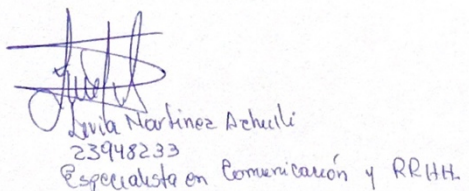 Livia Martinez Azhulli
23948233
Especialista en Comunicación y RRHH.